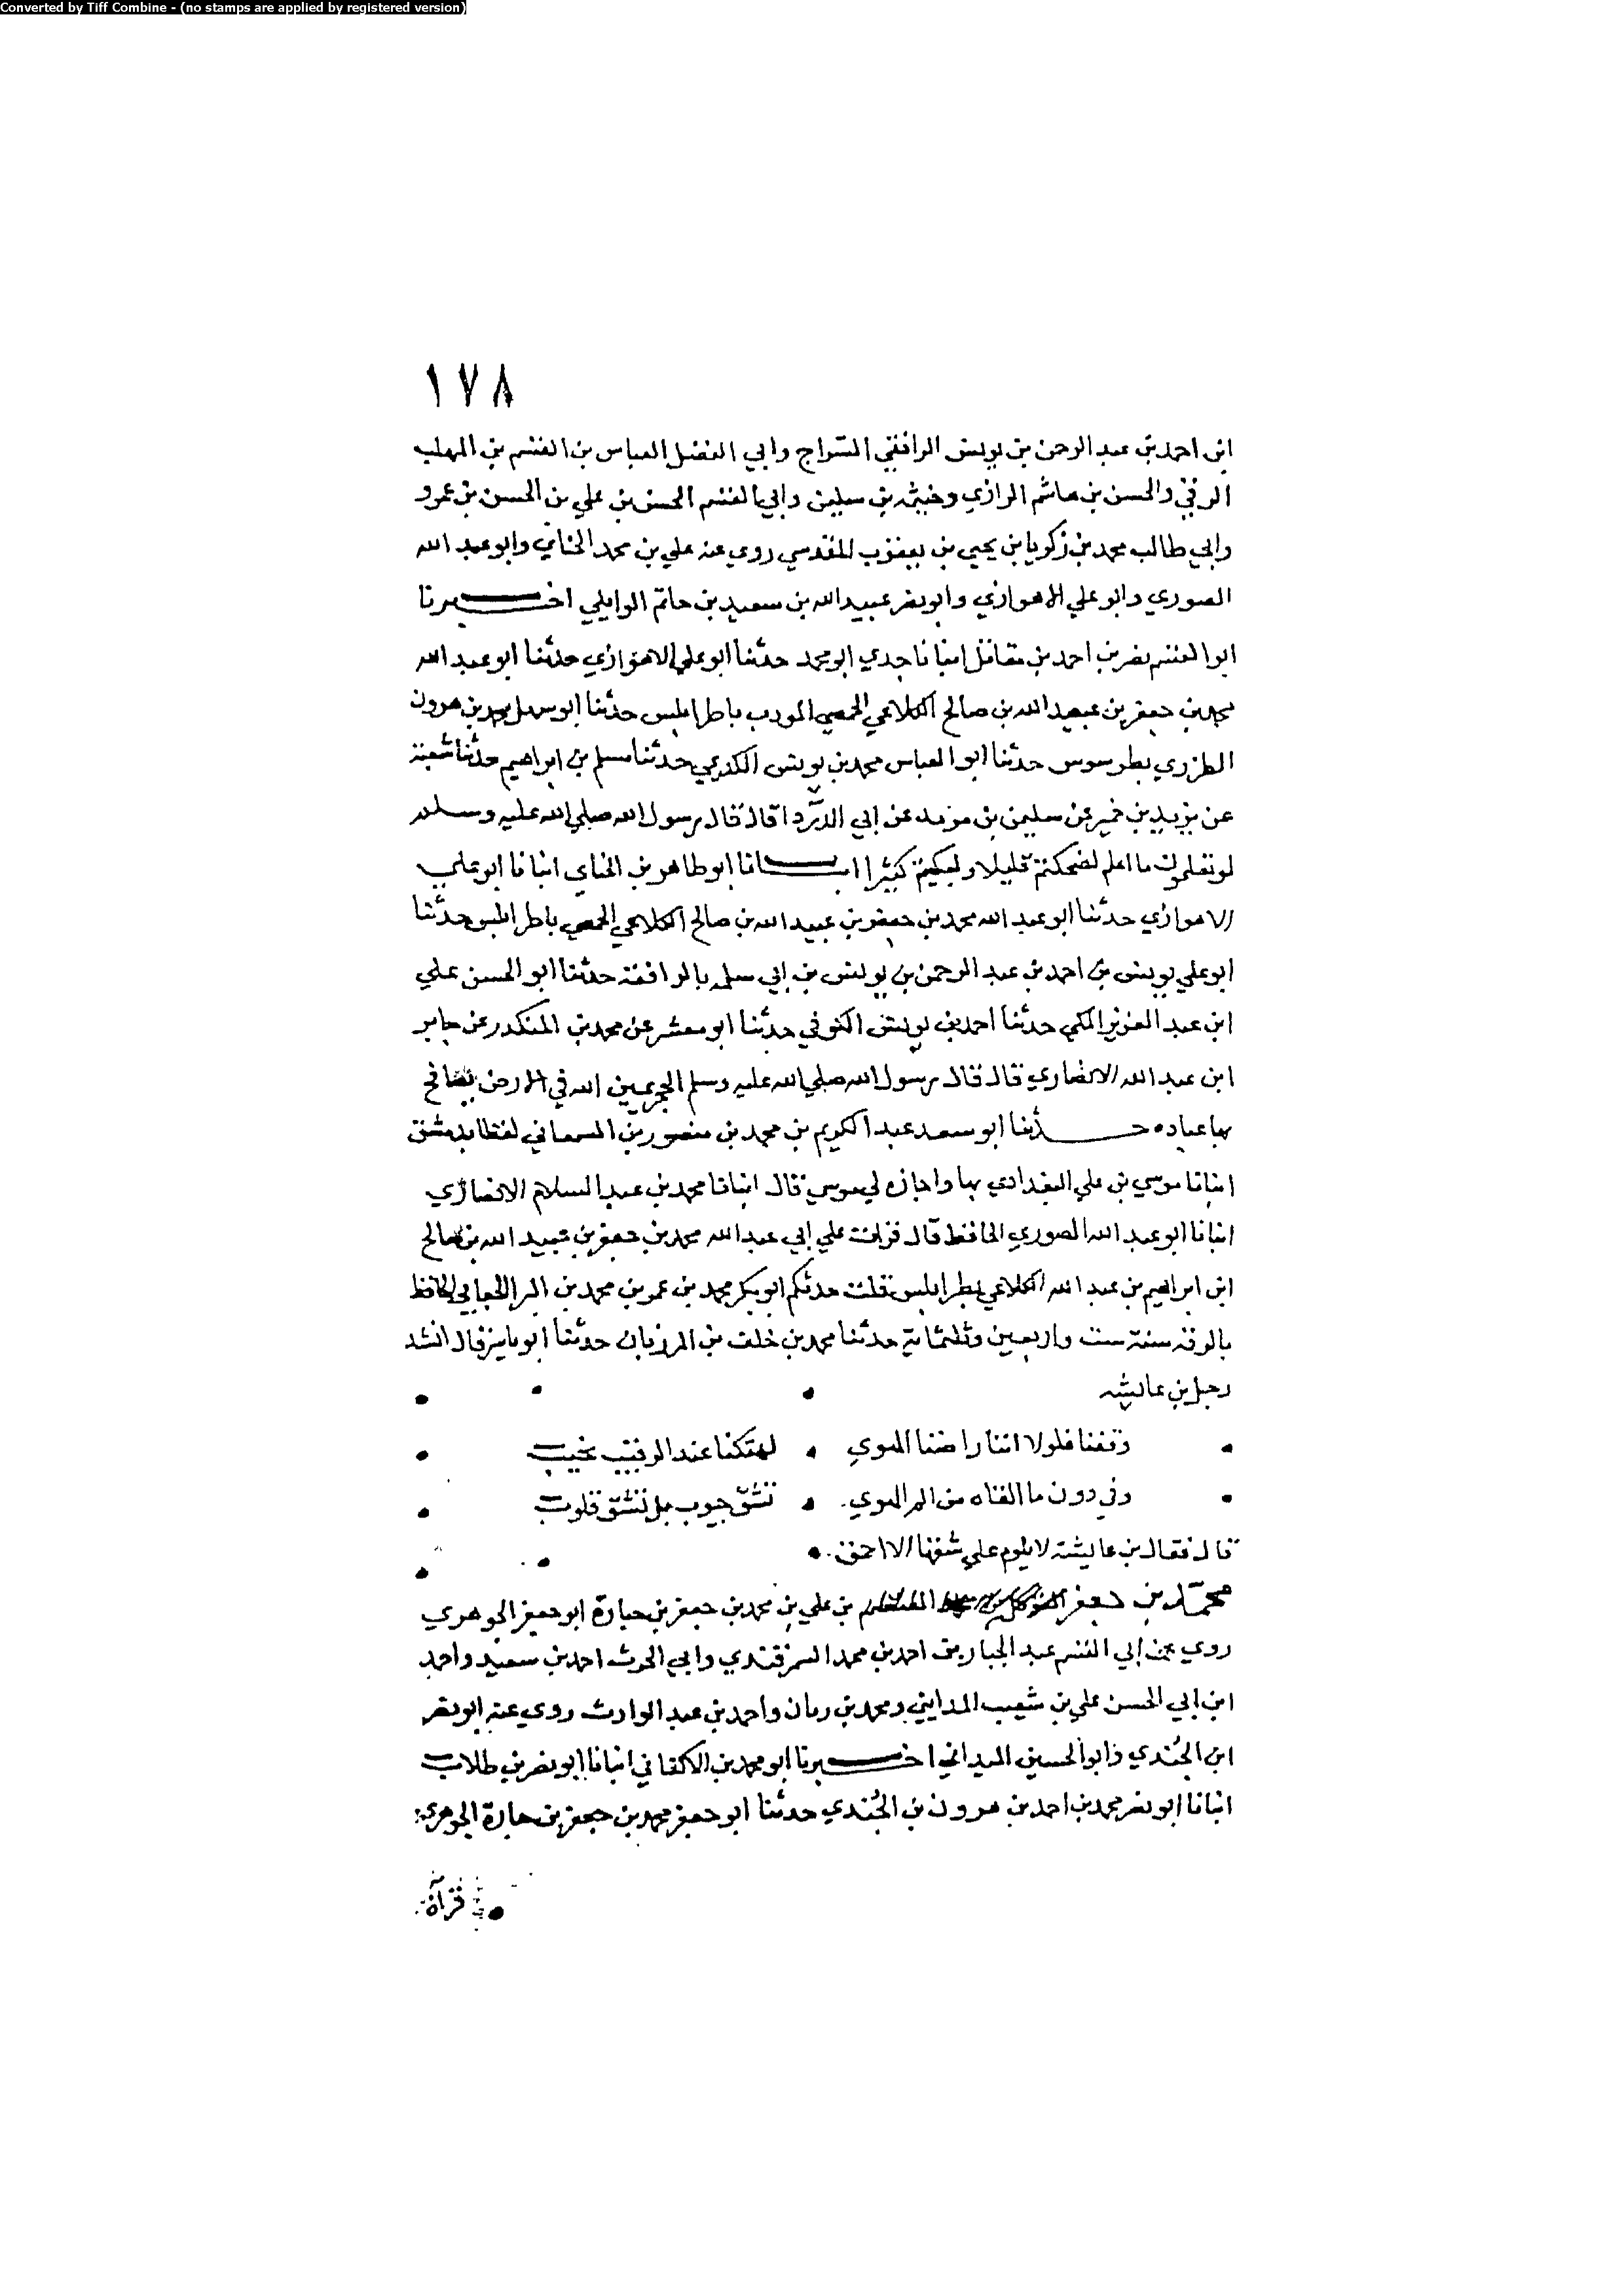 Converted by Tiff Combine - (no stamps are applied by registered version)
١٧٨
ابن احمد بن عبد الرحمن بن يونس الرافقي السّراج وابي الفضل العباس بن القسم بن المهلب
الرقي والحسن بن هاشم الرازي وخيثمه بن سليمن وابي القسم الحسن بن علي بن الحسن بن عمرو
وابي طالب محمد بن زكريا بن يحيي بن يعقوب المقدسي روي عنه علي بن محمد الحناي وابو عبد الله
الصوري وابو علي الاهوازي وابو نصر عبيد الله بن سعيد بن حاتم الوايلي اخبرنا
ابوا القسم نصر بن احمد بن مقاتل انبانا جدي ابو محمد حدثنا ابو علي الاهوازي حدثنا ابو عبد الله
محمد بن جعفر بن عبيد الله بن صالح الكلاعي الحمصي المودب باطرابلس حدثنا ابو سهل محمد بن هرون
الطزري بطرسوس حدثنا ابو العباس محمد بن يونس الكديمي حدثنا مسلم بن ابراهيم حدثنا شعبة
عن يزيد بن خمير عن سليمن بن مرثد عن ابي الدّرداء قال قال رسول الله صلي الله عليه وسلم
لو تعلمون ما اعلم لضحكتم قليلا ولبكيتم كثيرا انبانا ابو طاهر بن الحناي انبانا ابو علي
الاهوازي حدثنا ابو عبد الله محمد بن جعفر بن عبيد الله بن صالح الكلاعي الحمصي باطرابلس حدثنا
ابو علي يونس بن احمد بن عبد الرحمن بن يونس بن ابي سلمه بالرافقة حدثنا ابو الحسن علي
ابن عبد العزيز المكي حدثنا احمد بن يونس الكوفي حدثنا ابو معشر عن محمد بن المنكدر عن جابر
ابن عبد الله الانصاري قال قال رسول الله صلي الله عليه وسلم الحجر يمين الله في الارض يصافح
بها عباده حدثنا ابو سعد عبد الكريم بن محمد بن منصور بن السمعاني لفظا بدمشق
انبانا موسي بن علي البغدادي بها واجازه لي موسي قال انبانا محمد بن عبد السلام الانصاري
انبانا ابو عبد الله الصوري الحافظ قال قرات علي ابي عبد الله محمد بن جعفر بن عبيد الله بن صالح
ابن ابراهيم بن عبد الله الكلاعي بطرابلس قلت حدثكم ابو بكر محمد بن عمر بن محمد بن البرا الجعابي الحافظ
بالرقه سنة ست واربعين وثلثماية حدثنا محمد بن خلف بن المرزبان حدثنا ابو قال انشد
رجل بن عايشه
وقفنا فلولا اننا راضنا الهوي • لهتكنا عند الرقيب نحيب
وفي دون ما القاه من الم الهوي • تشقّ جيوب بل تشقّ قلوب
قال فقال بن عايشة لا يلوم علي شقها الا احمق
محمّد بن جعفر بن علي بن محمد بن جعفر بن حبارة ابو جعفر الجوهري
روي عن ابي القسم عبد الجبار بن احمد بن محمد السمرقندي وابي الحرث احمد بن سعيد واحمد
ابن ابي الحسن علي بن شعيب المدايني ومحمد بن ريان واحمد بن عبد الوارث روي عنه ابو نصر
ابن الجُندي وابو الحسين الميداني اخبرنا ابو محمد بن الاكفاني انبانا ابو نصر بن طلاب
انبانا ابو نصر محمد بن احمد بن هرون بن الجُندي حدثنا ابو جعفر محمد بن جعفر بن حبارة الجوهري
قرآة